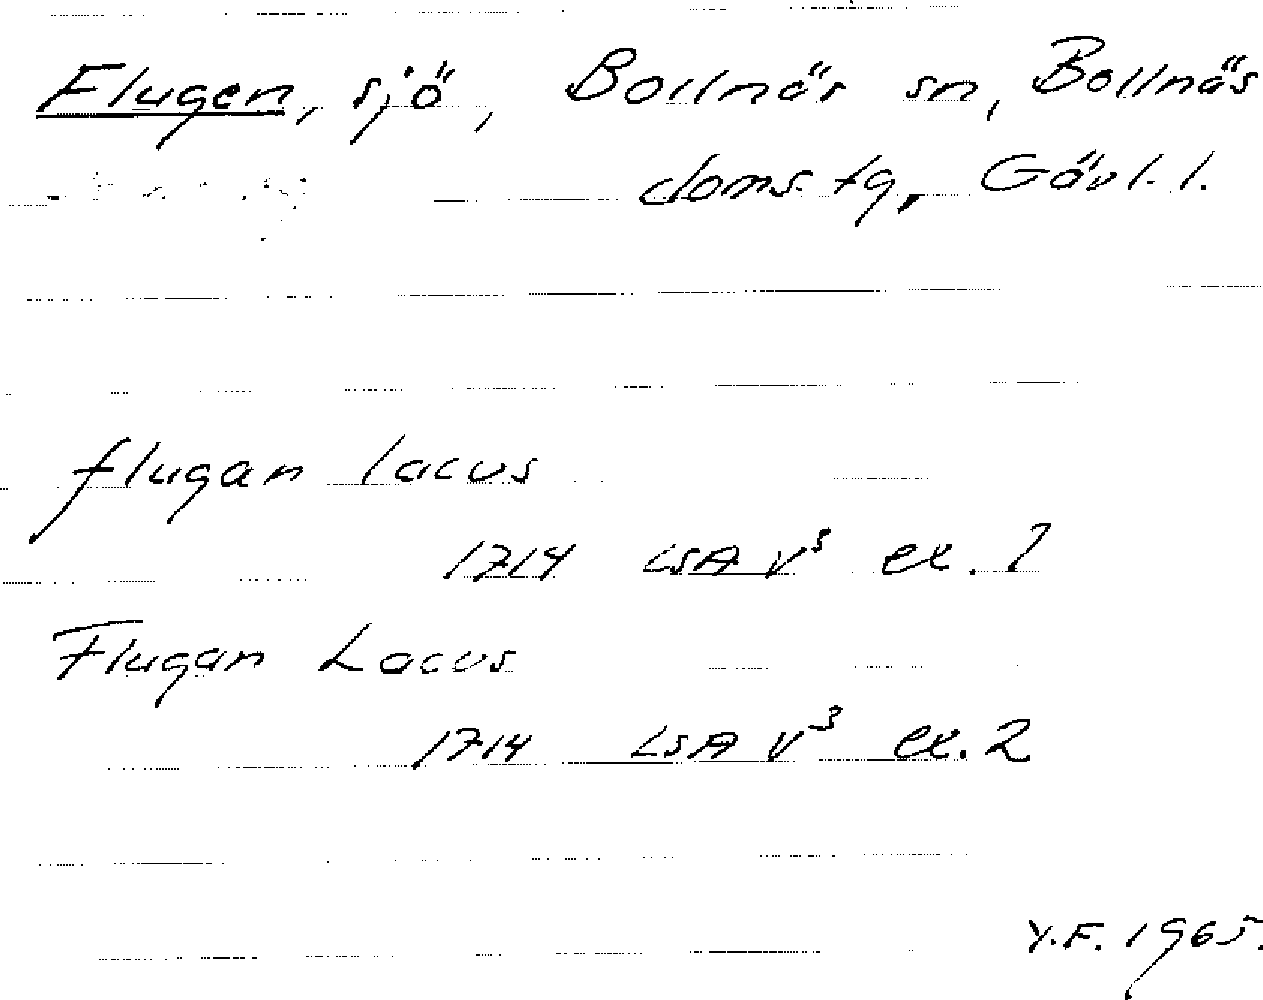 Flugen, sjö, Bollnäs sn, Bollnäs
doms. tg, Gävl. l.
flugan lacus
1714 LSA V³ ex. 1
Flugan Lacus
1714 LSA V³ ex. 2
Y.F. 1965.